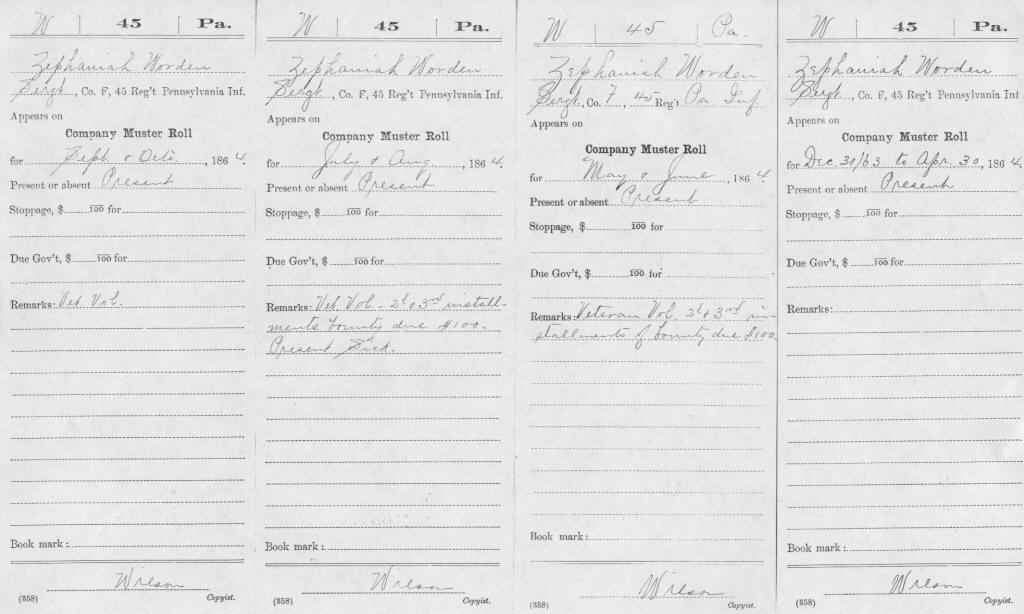 W | 45 | Pa.
Zephaniah Worden
Sergt., Co. F, 45 Reg't Pennsylvania Inf.
Appears on
Company Muster Roll
for Sept. & Octo., 1864.
Present or absent Present
Stoppage, $ 100 for
Due Gov't, $ 100 for
Remarks: Vet. Vol.
Book mark:
Wilson
(358) Copyist.
W | 45 | Pa.
Zephaniah Worden
Sergt., Co. F, 45 Reg't Pennsylvania Inf.
Appears on
Company Muster Roll
for July & Aug., 1864.
Present or absent Present
Stoppage, $ 100 for
Due Gov't, $ 100 for
Remarks: Vet. Vol. - 2d & 3rd install-
ments bounty due $100.
Present Sick.
Book mark:
Wilson
(358) Copyist.
W | 45 | Pa.
Zephaniah Worden
Sergt., Co. F, 45 Reg't Pa. Inf
Appears on
Company Muster Roll
for May & June, 1864.
Present or absent Present
Stoppage, $ 100 for
Due Gov't, $ 100 for
Remarks: Veteran Vol. 2d & 3rd in-
stallments of bounty due $100.
Book mark:
Wilson
(358) Copyist.
W | 45 | Pa.
Zephaniah Worden
Sergt., Co. F, 45 Reg't Pennsylvania Inf
Appears on
Company Muster Roll
for Dec. 31/63 to Apr. 30, 1864.
Present or absent Present
Stoppage, $ 100 for
Due Gov't, $ 100 for
Remarks:
Book mark:
Wilson
(358) Copyist.